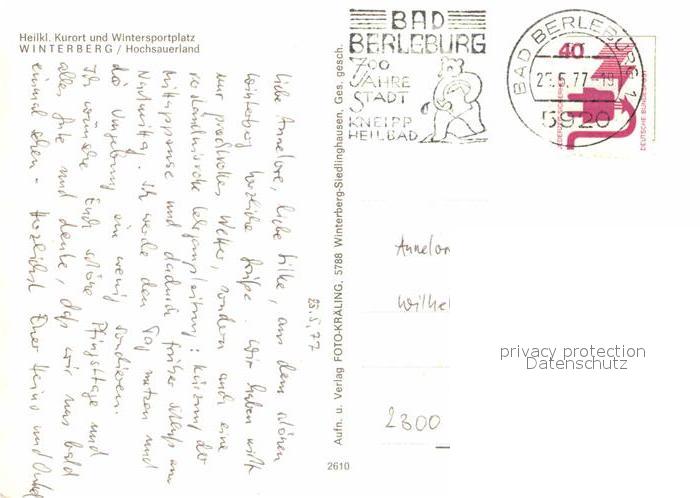 Heilkl. Kurort und Wintersportplatz
WINTERBERG / Hochsauerland
BAD
BERLEBURG
700
JAHRE
STADT
KNEIPP
HEILBAD
BAD BERLEBURG 1
25.5.77-18
5920
40
DEUTSCHE BUNDESPOST
25.5.77
Liebe Annelore, liebe Silke, aus dem schönen
Winterberg herzliche Grüße. Wir haben nicht
nur prachtvolles Wetter, sondern auch eine
verständnisvolle Lehrgangsleitung: Kürzung der
Mittagspause und dadurch früher Schluß am
Nachmittag. Ich werde den Tag nutzen und
die Umgebung ein wenig sondieren.
Ich wünsche Euch schöne Pfingsttage und
alles Gute und denke, daß wir uns bald
einmal sehen. Herzlichst Euer Heino und Onkel
Aufn. u. Verlag FOTO-KRÄLING, 5788 Winterberg-Siedlinghausen, Ges. gesch.
Annelor
Wilhel
2300
2610
privacy protection
Datenschutz